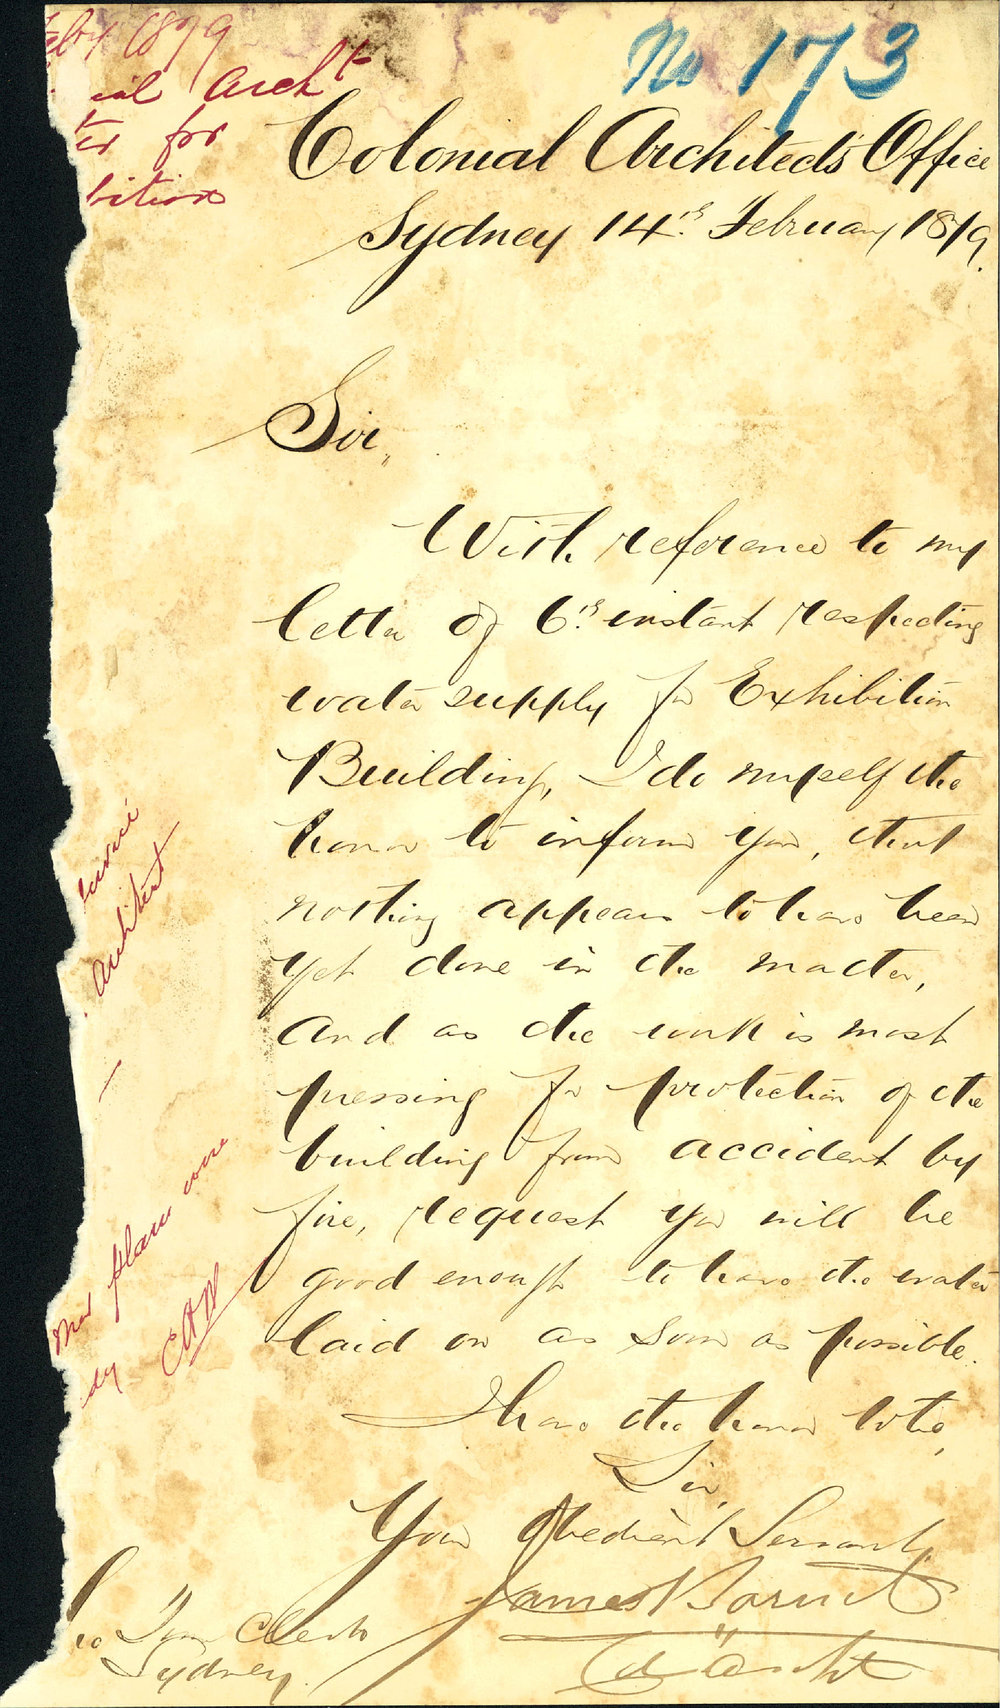 No 173
Feby 1879
ial Archt
ter for
bition
Colonial Architects Office
Sydney 14th February 1879.
Sir,,
With reference to my
letter of 6th instant respecting
water supply for Exhibition
Building, I do myself the
honor to inform you, that
nothing appears to have been
yet done in the matter,
and as the work is most
pressing for protection of the
building from accident by
fire, request you will be
good enough to have the water
laid on as soon as possible.
I have the honor to be,
Sir,
Your Obedient Servant,
James Barnet
Col Archt
Architect
plans were
dy
The Town Clerk
Sydney.